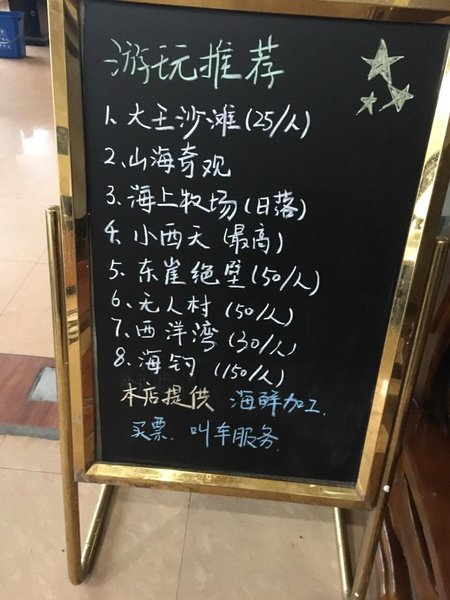 游玩推荐
1、大王沙滩(25/人)
2、山海奇观
3、海上牧场(日落)
4、小西天(最高)
5、东崖绝壁(50/人)
6、无人村(50/人)
7、西洋湾(30/人)
8、海钓(150/人)
本店提供 海鲜加工.
买票. 叫车服务.